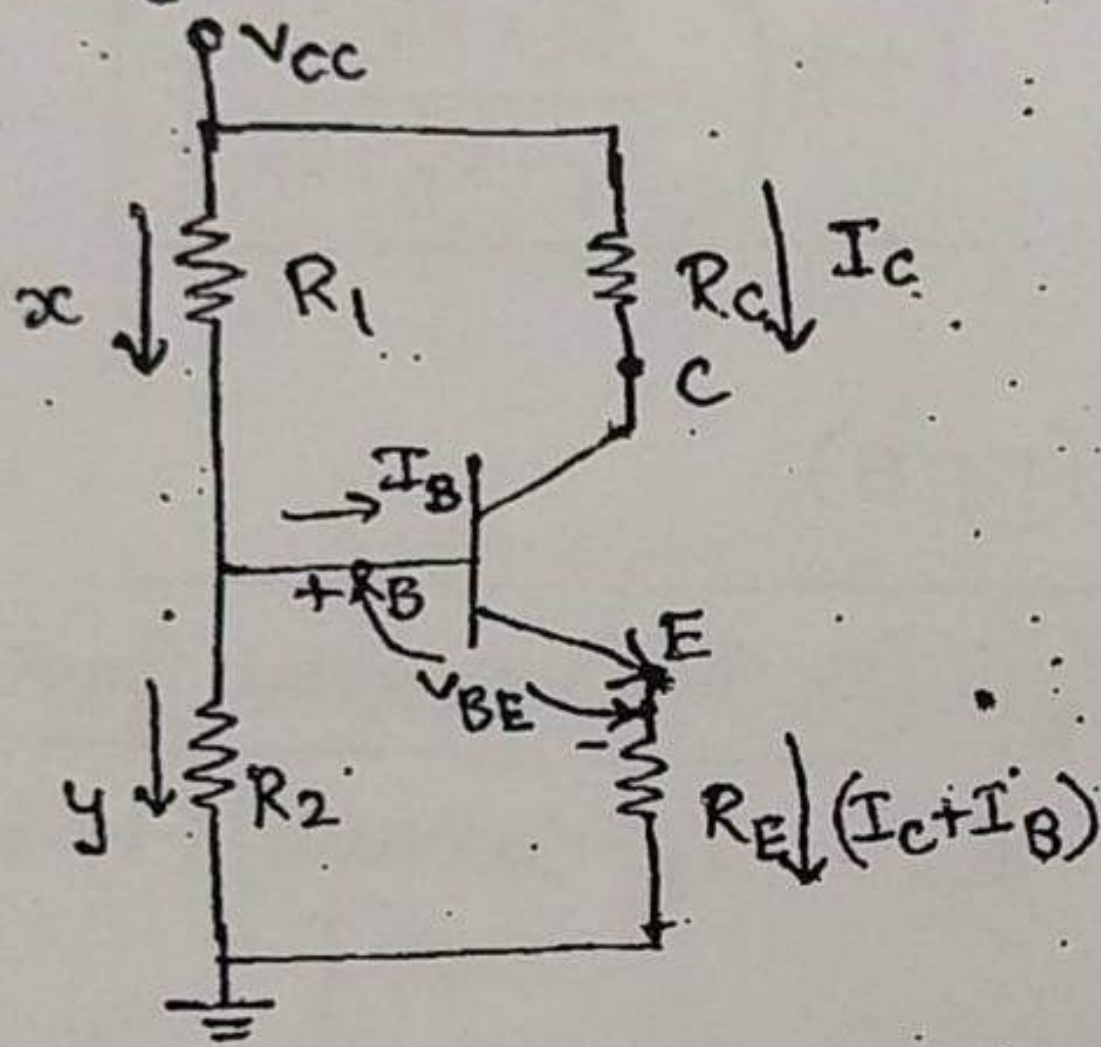 VCC
x
R1
RC
IC
C
IB
+ RB
E
VBE
-
y
R2
RE
(IC+IB)